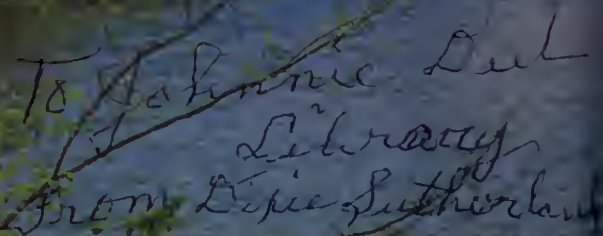 To Johnnie Deel
Library
From Dixie Sutherland